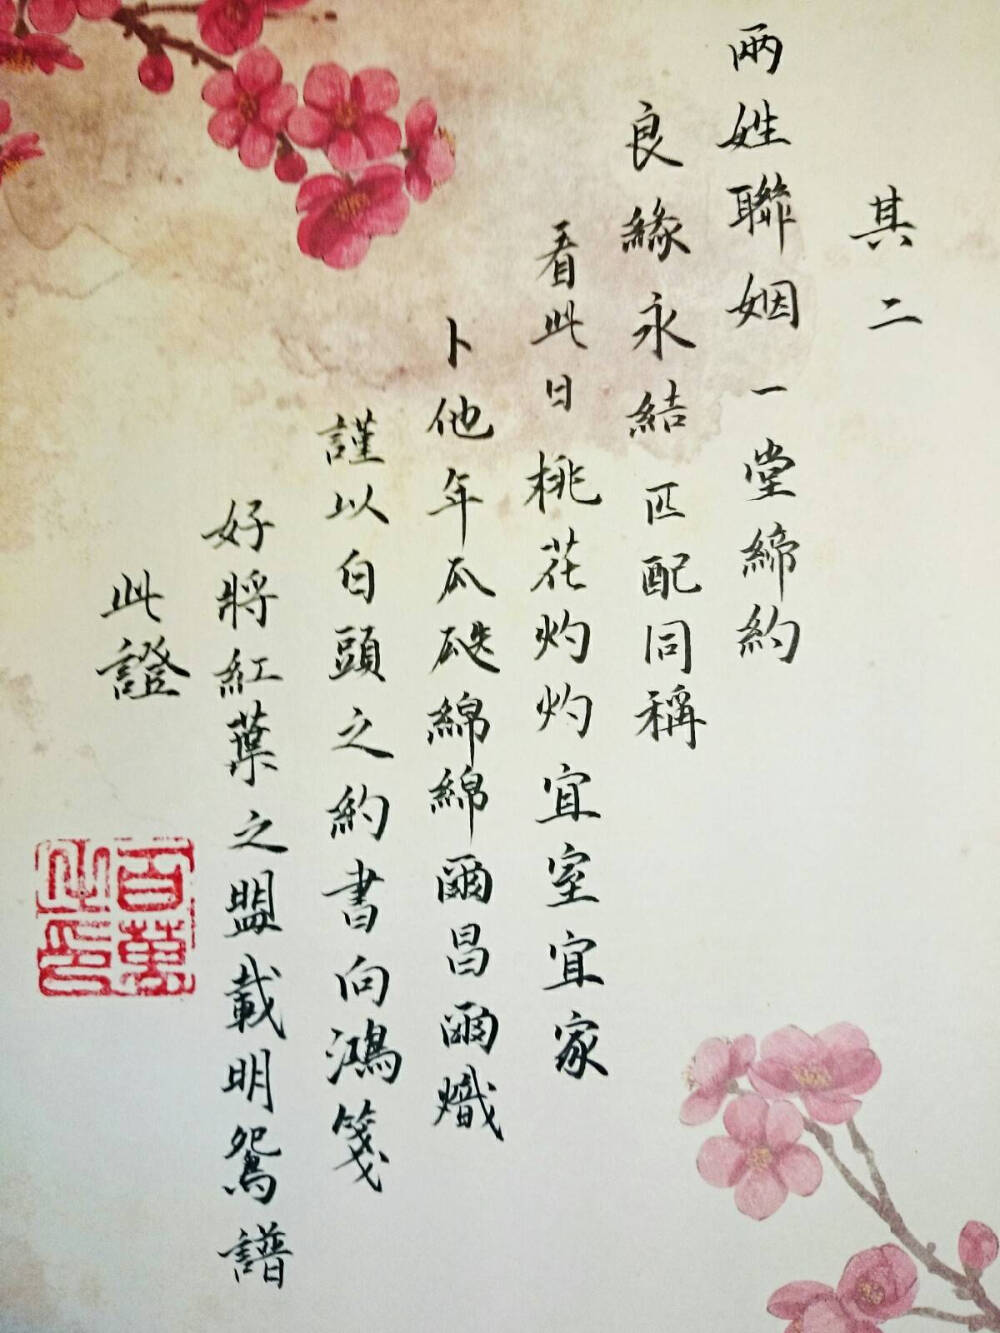 其二
兩姓聯姻一堂締約
良緣永結匹配同稱
看此日桃花灼灼宜室宜家
卜他年瓜瓞綿綿爾昌爾熾
謹以白頭之約書向鴻箋
好將紅葉之盟載明鴛譜
此證
百萬
之印